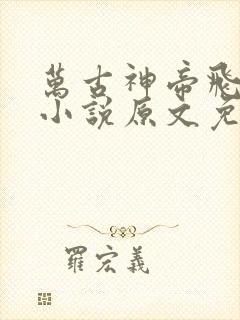 萬古神帝飛
小說原文免
羅宏義